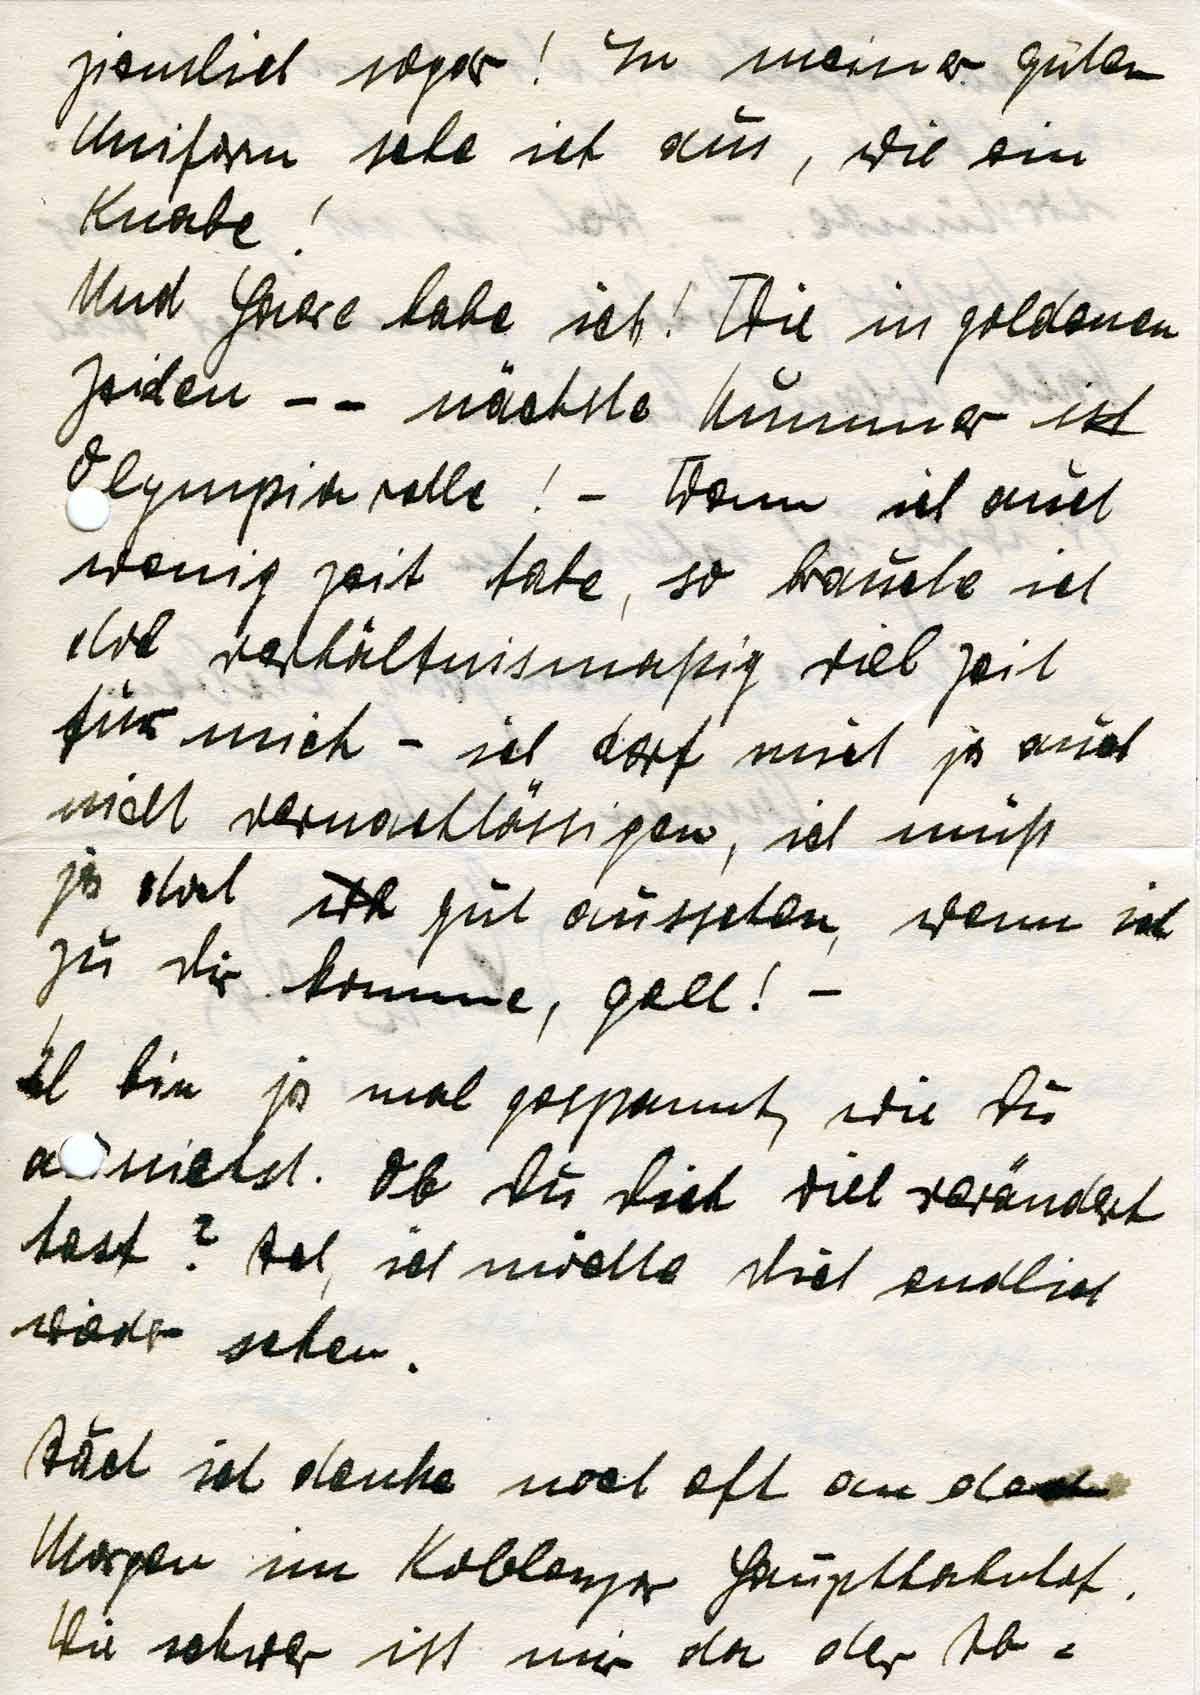 ziemlich sogar! In meiner guten
Uniform sehe ich aus, wie ein
Knabe!
Und Haare habe ich! Wie in goldenen
Zeiten -- nächste Nummer ist
Olympiarolle! - Wenn ich auch
wenig Zeit habe, so brauche ich
doch verhältnismaßig viel Zeit
für mich - ich darf mich ja auch
nicht vernachlässigen, ich muß
ja doch gut aussehen, wenn ich
zu Dir komme, gell! -
Ich bin ja mal gespannt, wie Du
aussiehst. Ob Du Dich viel verändert
hast? Ach, ich möchte Dich endlich
wieder sehen.
Auch ich denke noch oft an den
Morgen im Koblenzer Hauptbahnhof.
Wie schwer ist mir da der Ab=